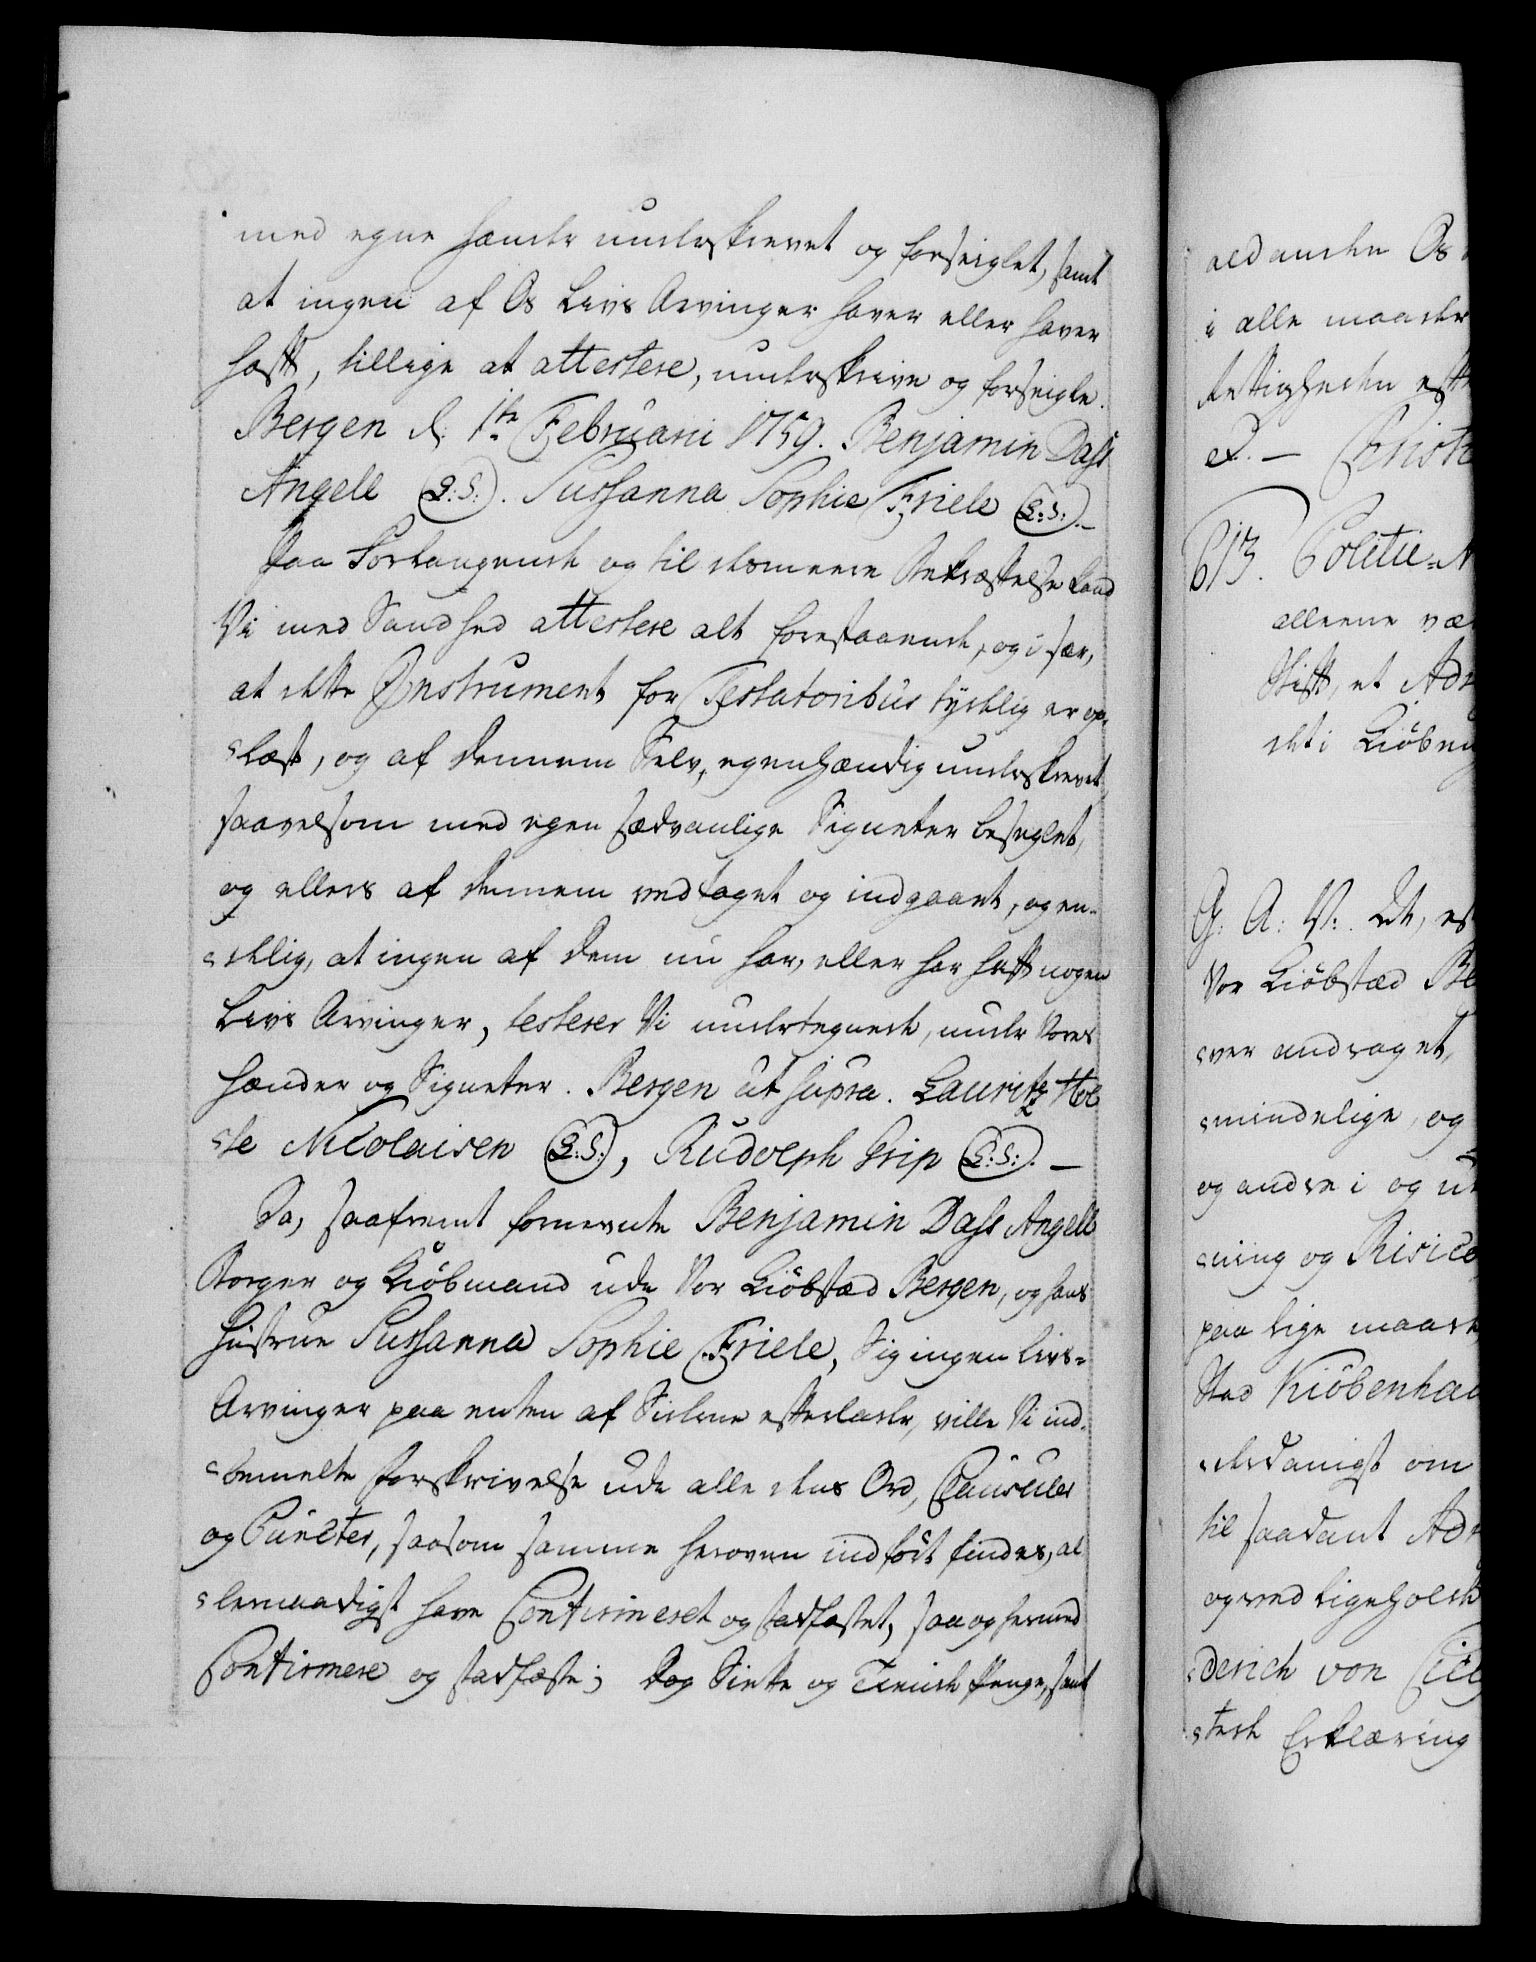 med egne Hænder underskrevet og forseiglet, samt
at ingen af Os Livs Arvinger haver eller haver
hafft, tillige at attestere, underskrive og forseigle.
Bergen d: 1te Februarii 1759. Benjamin Dass
Angell (L:S:). Sussanna Sophie Friele (L:S:).
Paa Forlangende og til desmeere Bekræftelse kand
Vi med Sandhed attestere alt forestaaende, og i sær,
at dette Instrument for Testatoribus tydelig er op-
læst, og af dennem Selv, egenhændig underskrevet
saavelsom med egen sædvanlige Signeter beseglet,
og ellers af dennem vedtaget og indgaaet, og en-
delig, at ingen af dem nu har, eller har hafft nogen
Livs Arvinger, testerer Vi undertegnede, under Vores
Hænder og Signeter. Bergen ut supra. Lauritz Hol
ste Nicolaisen (L:S:), Rudolph Grip (L:S:). —
Da, saafremt fornevnte Benjamin Dass Angell
Borger og Kiöbmand udi Vor Kiöbstæd Bergen, og hans
Hustrue Sussanna Sophie Friele, Sig ingen Livs-
Arvinger paa enten af Siderne efterlader, ville Vi ind-
bemelte Forskrivelse udi alle dens Ord, Clausuler
og Puncter, saasom samme heroven indfört findes, al
lernaadigst have Confirmeret og stadfæstet, saa og hermed
Confirmere og stadfæste; Dog Siette og Tiende Penge, samt
aldanden Os
i alle maader
Rettigheden efft
613. Politie-
allerne
Stifft, et
det i Kiöben
G. A. V:. At, ef
Vor Kiöbstæd Be
ver andraget,
mindelige, og
og andre i og u
ning og Risico
paa lige maade
Stad Kiöbenha
derdanigst om
til saadant Ad
og med ligeholde
derich von Cice
tede Erklæring